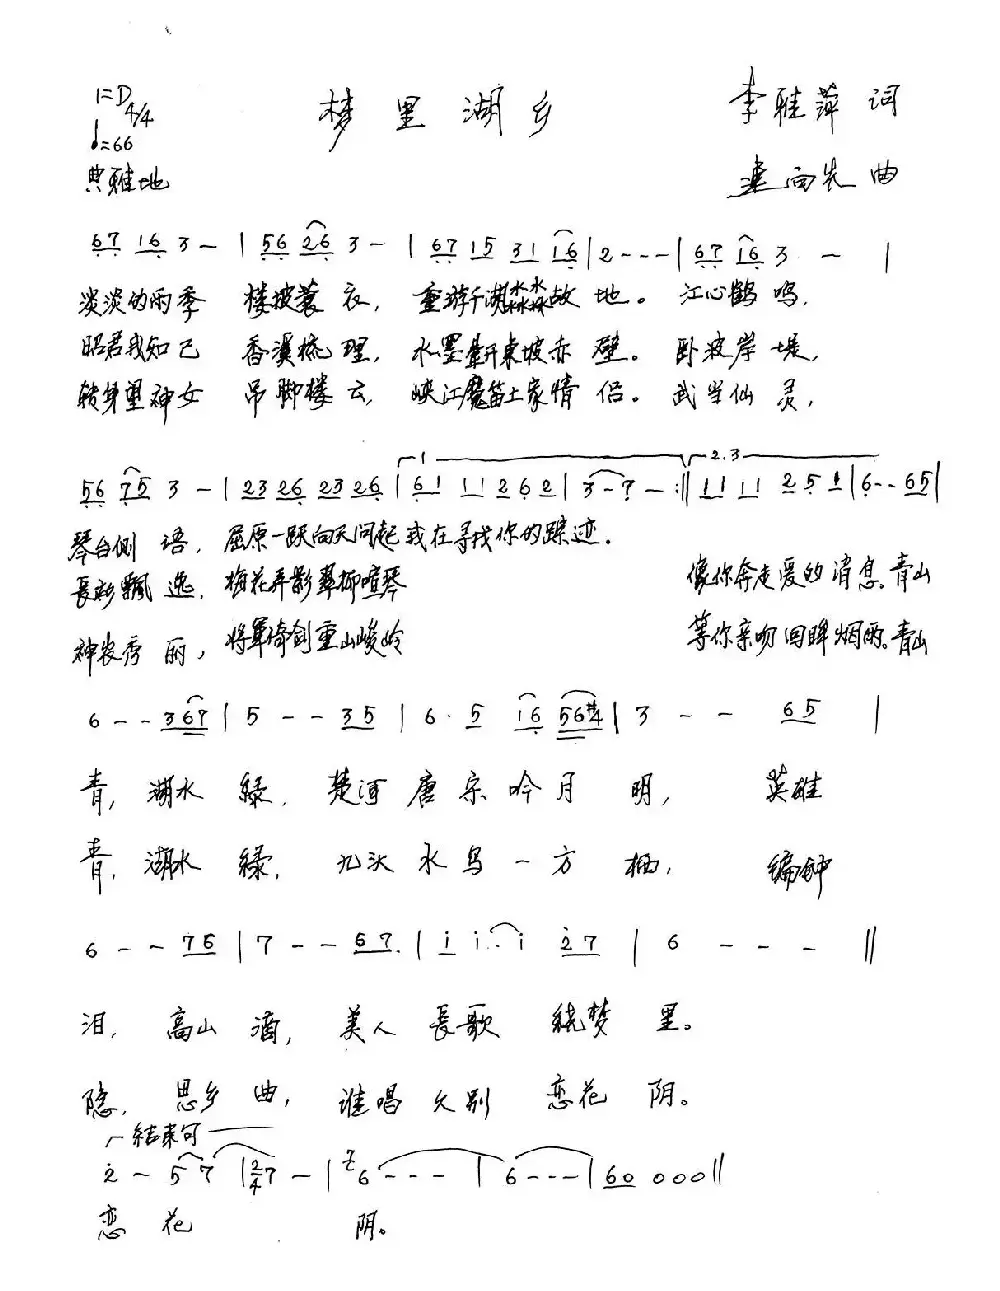 1=D 4/4
♩=66
典雅地
梦里湖乡
李雅萍 词
曲
67 16 3 - | 56 26 3 - | 67 15 31 16 | 2 - - - | 67 16 3 - |
淡淡的雨季 楼披蓑衣，重游千湖 故地。江心鹤鸣，
昭君我知己 香溪梳理，水墨 东坡赤壁。卧波岸堤，
转身望神女 吊脚楼云，峡江魔笛土家情侣。武当仙灵，
56 75 3 - | 23 26 23 26 | 1 61 11 26 2 | 3 - 7 - :‖ 2.3 11 11 25 1 | 6 - - 65 |
琴台侧语，屈原一跃向天问起 我在寻找你的踪迹．
長 飘逸，梅花弄影翠柳喧琴 像你奔走爱的消息。青山
神农秀丽，将軍倚剑重山峻岭 等你亲吻回眸烟雨。青山
6 - - 367 | 5 - - 35 | 6 · 5 16 56#4 | 3 - - 65 |
青，湖水 緑，楚河唐宗吟月 明，英雄
青，湖水 緑，九头水鸟一方栖，编钟
6 - - 76 | 7 - - 67 · | i i · · i 27 | 6 - - - ‖
泪，高山 滴，美人長歌 绕梦里。
隐，思乡曲，谁唱久别 恋花 阴。
结束句
2 - 5 7 | 2/4 7 - | 6 - - - | 6 - - - | 60 000 ‖
恋花 阴。